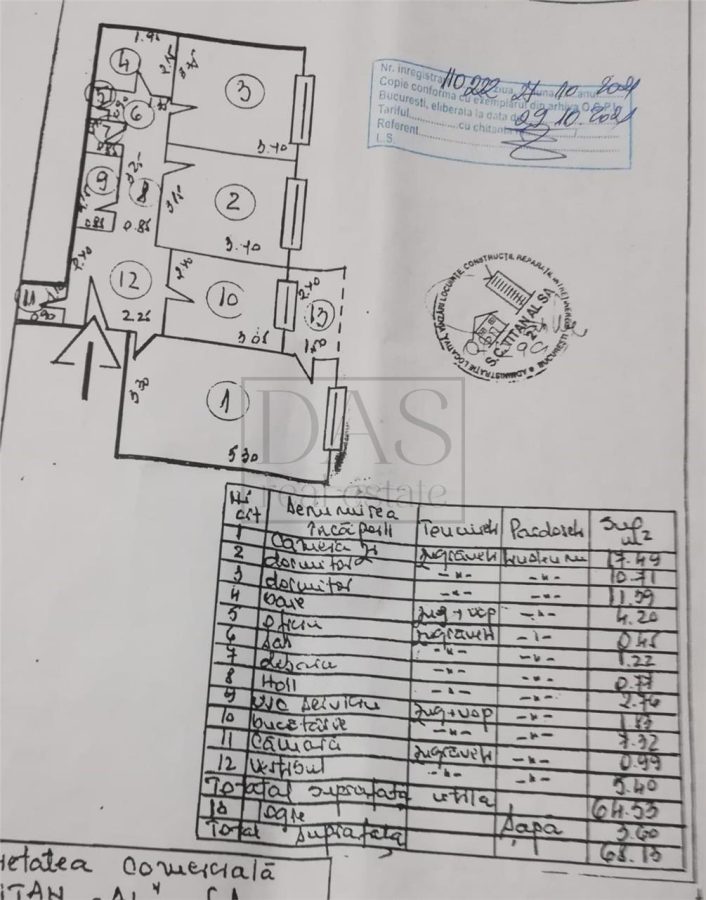 1.95
4
3
3.40
5
6
7
9
8
3.15
2
3.40
0.85
0.85
12
10
13
11
0.90
2.25
3.05
1.50
3.30
1
5.30
Nr. inregistrat 110222 ziua 27 luna 10 anul 2021
Copie conforma cu exemplarul din arhiva O.C.P.I.
Bucuresti, eliberata la data de 29.10.2021
Tariful cu chitanta
Referent
L.S.
S.C. TITAN AL SA
DAS
real estate
Nr crt Denumirea încăperii Tencuieli Pardoseli Sup m2
1 Camera zi zugraveli 17.49
2 dormitor -"- -"- 10.71
3 dormitor -"- -"- 11.59
4 baie zug+vop -"- 4.20
5 oficiu zugraveli -"- 0.45
6 sas -"- -"- 1.22
7 debara -"- -"- 0.77
8 Holl -"- -"- 2.76
9 wc serviciu zug+vop -"-
10 bucătărie -"- -"- 7.32
11 Cămară zugraveli -"- 0.99
12 vestibul -"- -"- 5.40
Total suprafata utila 64.53
13 logie șapă 3.60
Total suprafata 68.13
etatea Comercială
TITAN "AL" SA